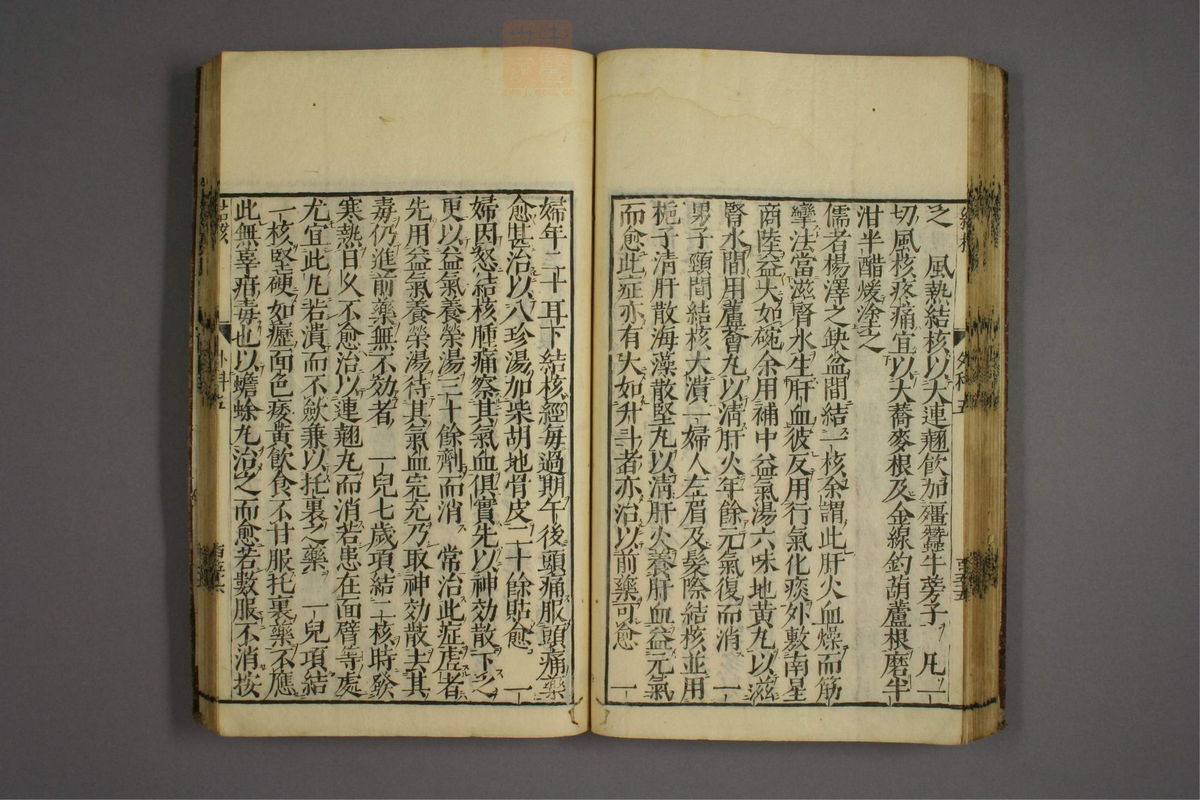 之　風熱結核以大連翹飲加殭蠶牛蒡子　凡一
切風核疼痛宜以大蕎麥根及金線釣葫蘆根磨半
泔半醋煖塗之
儒者楊澤之缺盆間結一核余謂此肝火血燥而筋
攣法當滋腎水生肝血彼反用行氣化痰外敷南星
商陸益大如碗余用補中益氣湯六味地黃丸以滋
腎水間用蘆薈丸以清肝火年餘元氣復而消　一
男子頸間結核大潰一婦人左眉及髮際結核並用
梔子清肝散海藻散堅丸以清肝火養肝血益元氣
而愈此症亦有大如升斗者亦治以前藥可愈　一
婦年二十耳下結核經每過期午後頭痛服頭痛藥
愈甚治以八珍湯加柴胡地骨皮二十餘貼愈　一
婦因怒結核腫痛察其氣血俱實先以神効散下之
更以益氣養榮湯三十餘劑而消　常治此症虛者
先用益氣養榮湯待其氣血完充乃取神効散去其
毒仍進前藥無不効者　一兒七歲項結二核時發
寒熱日久不愈治以連翹丸而消若患在面臂等處
尤宜此凡若潰而不斂兼以托裏之藥　一兒項結
一核堅硬如癧面色痿黃飲食不甘服托裏藥不應
此無辜疳毒也以蟾蜍丸治之而愈若數服不消按
結核
外科五